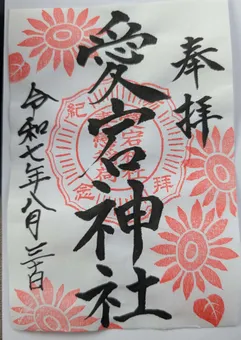 奉拝
愛宕神社
令和七年八月三十日